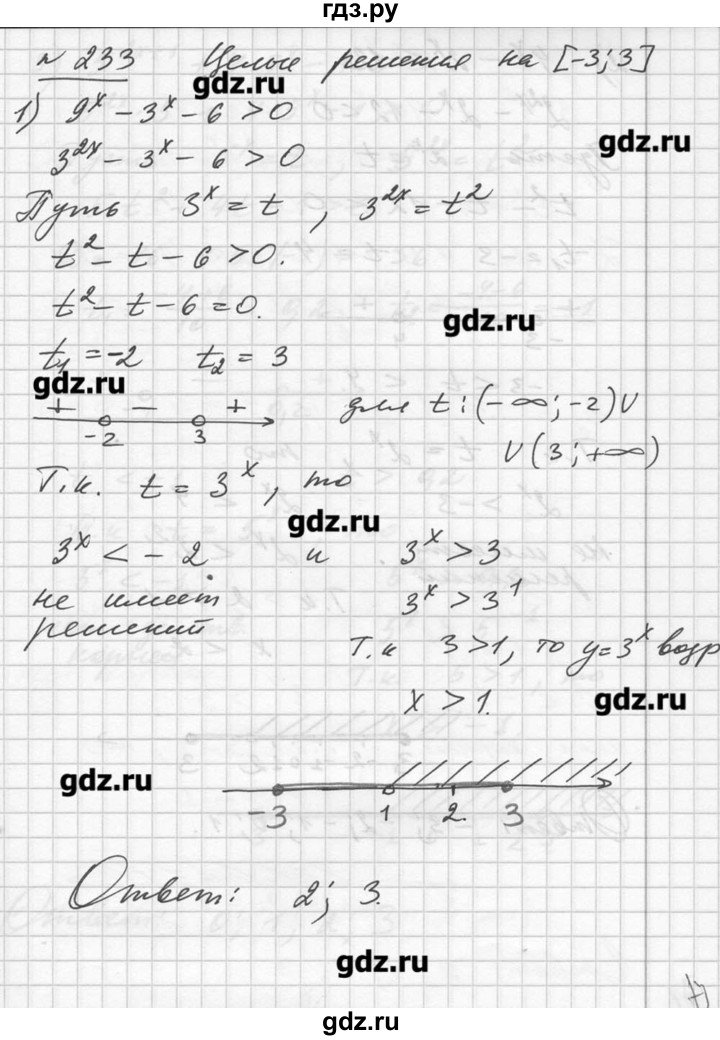 гдз.ру
№ 233 Целые решения на [-3; 3]
gdz.ru
1) 9^x - 3^x - 6 > 0
gdz.ru
3^2x - 3^x - 6 > 0
Путь 3^x = t, 3^2x = t^2
t^2 - t - 6 > 0.
t^2 - t - 6 = 0.
gdz.ru
t1 = -2 t2 = 3
gdz.ru
+ - +
-2 3
для t: (-∞; -2) U
U (3; +∞)
Т.к. t = 3^x, то
gdz.ru
3^x < -2 и 3^x > 3
не имеет 3^x > 3^1
решений
Т.к 3 > 1, то y = 3^x возр
x > 1.
gdz.ru
gdz.ru
-3 1 2 3
Ответ: 2; 3.
gdz.ru
gdz.ru